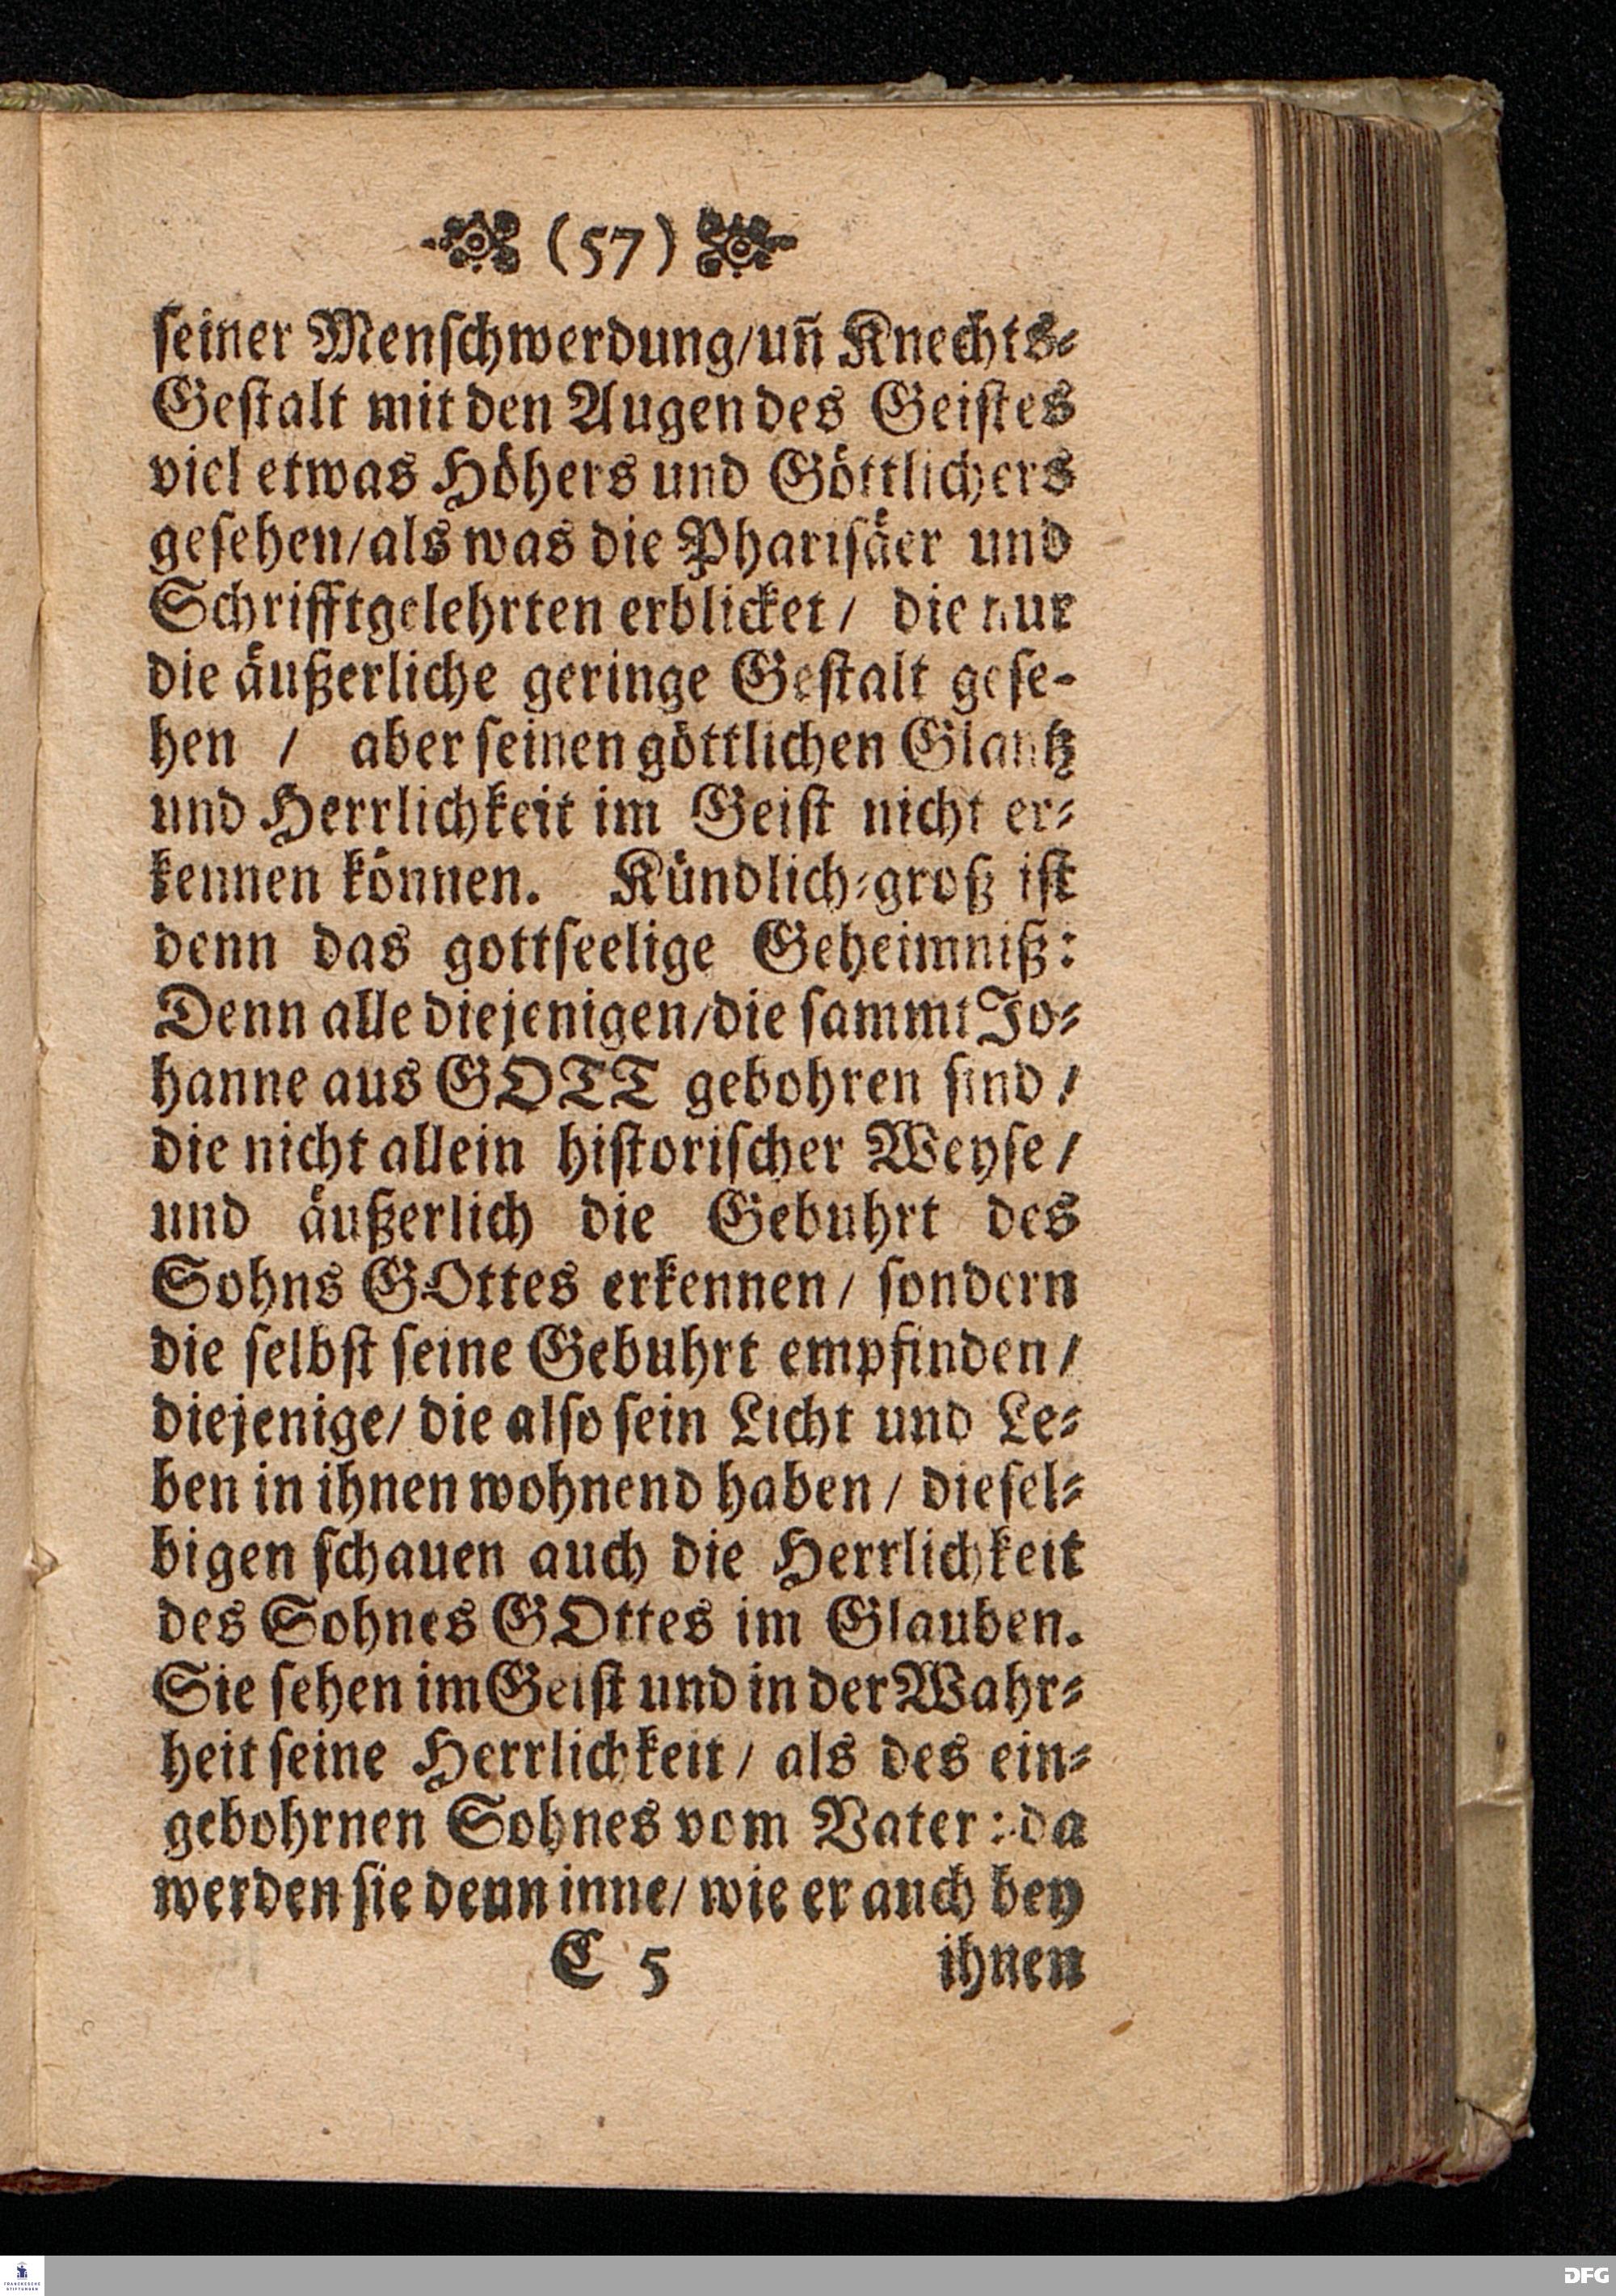 (57)
seiner Menschwerdung/uñ Knechts⸗
Gestalt mit den Augen des Geistes
viel etwas Höhers und Göttlichers
gesehen/als was die Pharisäer und
Schrifftgelehrten erblicket/ die nur
die äußerliche geringe Gestalt gese-
hen / aber seinen göttlichen Glantz
und Herrlichkeit im Geist nicht er⸗
kennen können. Kündlich⸗groß ist
denn das gottseelige Geheimniß:
Denn alle diejenigen/die sammt Jo⸗
hanne aus GOTT gebohren sind/
die nicht allein historischer Weyse/
und äußerlich die Gebuhrt des
Sohns GOttes erkennen/ sondern
die selbst seine Gebuhrt empfinden/
diejenige/ die also sein Licht und Le⸗
ben in ihnen wohnend haben/ diesel⸗
bigen schauen auch die Herrlichkeit
des Sohnes GOttes im Glauben.
Sie sehen im Geist und in der Wahr⸗
heit seine Herrlichkeit/ als des ein⸗
gebohrnen Sohnes vom Vater: da
werden sie denn inne/ wie er auch bey
C 5 ihnen
FRANCKESCHE
STIFTUNGEN
DFG